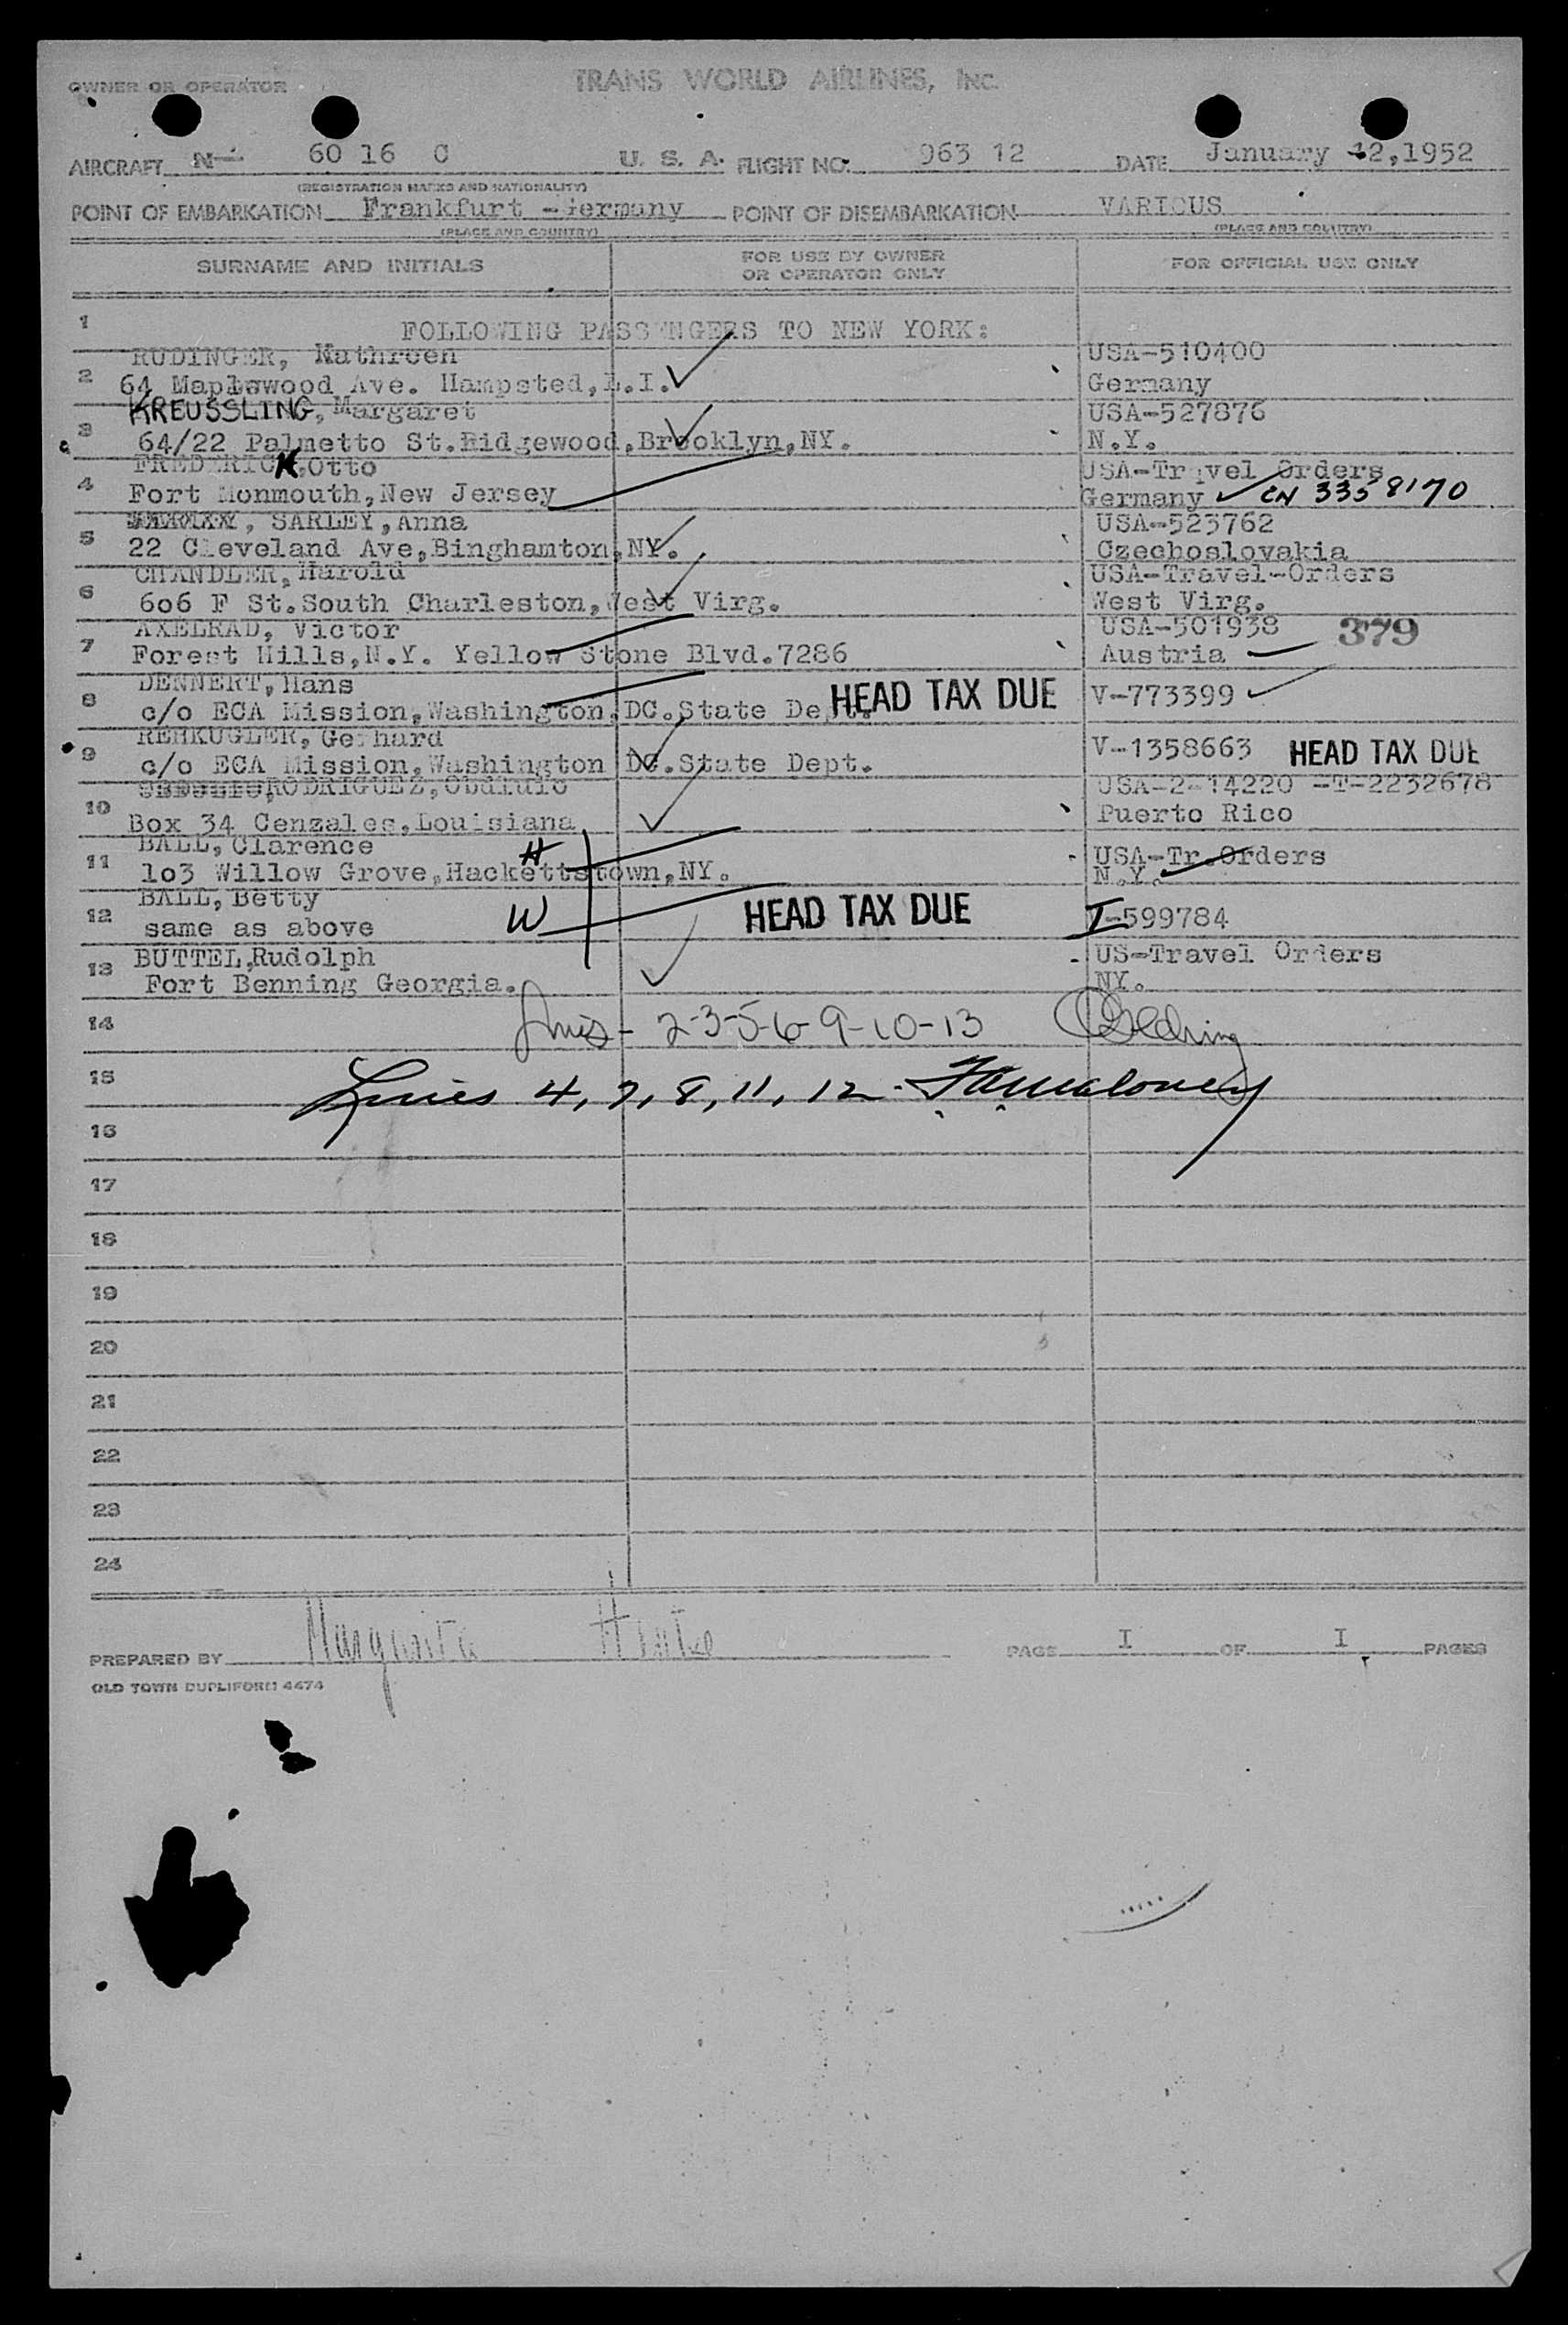 OWNER OR OPERATOR TRANS WORLD AIRLINES, INC.
AIRCRAFT N- 60 16 C U. S. A. FLIGHT NO. 963 12 DATE January 12,1952
(REGISTRATION MARKS AND NATIONALITY)
POINT OF EMBARKATION Frankfurt -Germany POINT OF DISEMBARKATION VARIOUS
(PLACE AND COUNTRY) (PLACE AND COUNTRY)
SURNAME AND INITIALS FOR USE BY OWNER OR OPERATOR ONLY FOR OFFICIAL USE ONLY
1 FOLLOWING PASSENGERS TO NEW YORK:
RUDINGER, Kathreen USA-510400
2 64 Maplewood Ave. Hampsted,L.I. Germany
KREUSSLING, Margaret USA-527876
3 64/22 Palmetto St.Ridgewood,Brooklyn,NY. N.Y.
FREDERICK,Otto USA-Travel Orders
4 Fort Monmouth,New Jersey Germany CN 3358170
SARLEY,Anna USA-523762
5 22 Cleveland Ave,Binghamton,NY. Czechoslovakia
CHANDLER,Harold USA-Travel-Orders
6 606 F St.South Charleston,West Virg. West Virg.
AXELRAD, Victor USA-501938 379
7 Forest Hills,N.Y. Yellow Stone Blvd.7286 Austria
DENNERT,Hans
8 c/o ECA Mission,Washington,DC.State Dept. HEAD TAX DUE V-773399
REHKUGLER,Gerhard
9 c/o ECA Mission,Washington DC.State Dept. V-1358663 HEAD TAX DUE
RODRIGUEZ,Obdulio USA-2-14220 -T-2232678
10 Box 34 Cenzales,Louisiana Puerto Rico
BALL,Clarence H USA-Tr.Orders
11 103 Willow Grove,Hackettstown,NY. N.Y.
BALL,Betty
12 same as above W HEAD TAX DUE I-599784
BUTTEL,Rudolph US-Travel Orders
13 Fort Benning Georgia. NY.
14 Lines - 2-3-5-6-9-10-13
15 Lines 4, 7, 8, 11, 12 - Maloney
16
17
18
19
20
21
22
23
24
PREPARED BY Margarita PAGE I OF I PAGES
OLD TOWN DUPLIFORM 4474